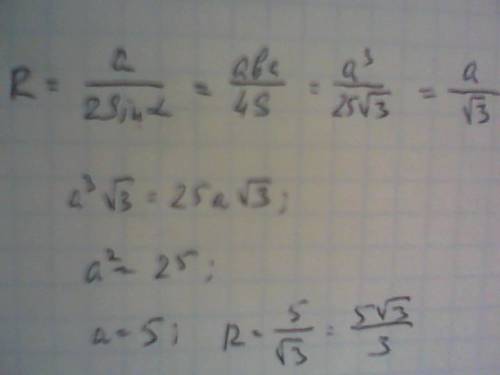 R = a/(2Sin α) = abc/(4S) = a³/(25√3) = a/√3
a³√3 = 25a√3;
a² = 25;
a = 5; R = 5/√3 = 5√3/3